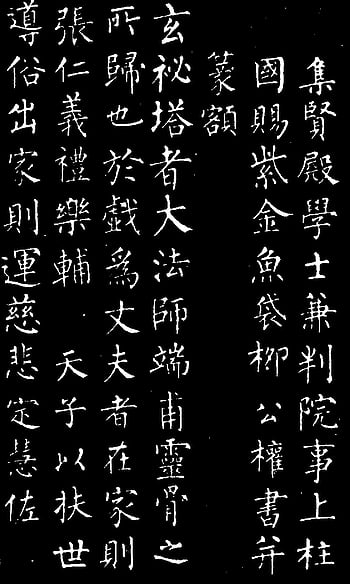 集賢殿學士兼判院事上柱
國賜紫金魚袋柳公權書并
篆額
玄祕塔者大法師端甫靈骨之
所歸也於戲爲丈夫者在家則
張仁義禮樂輔　天子以扶世
導俗出家則運慈悲定慧佐